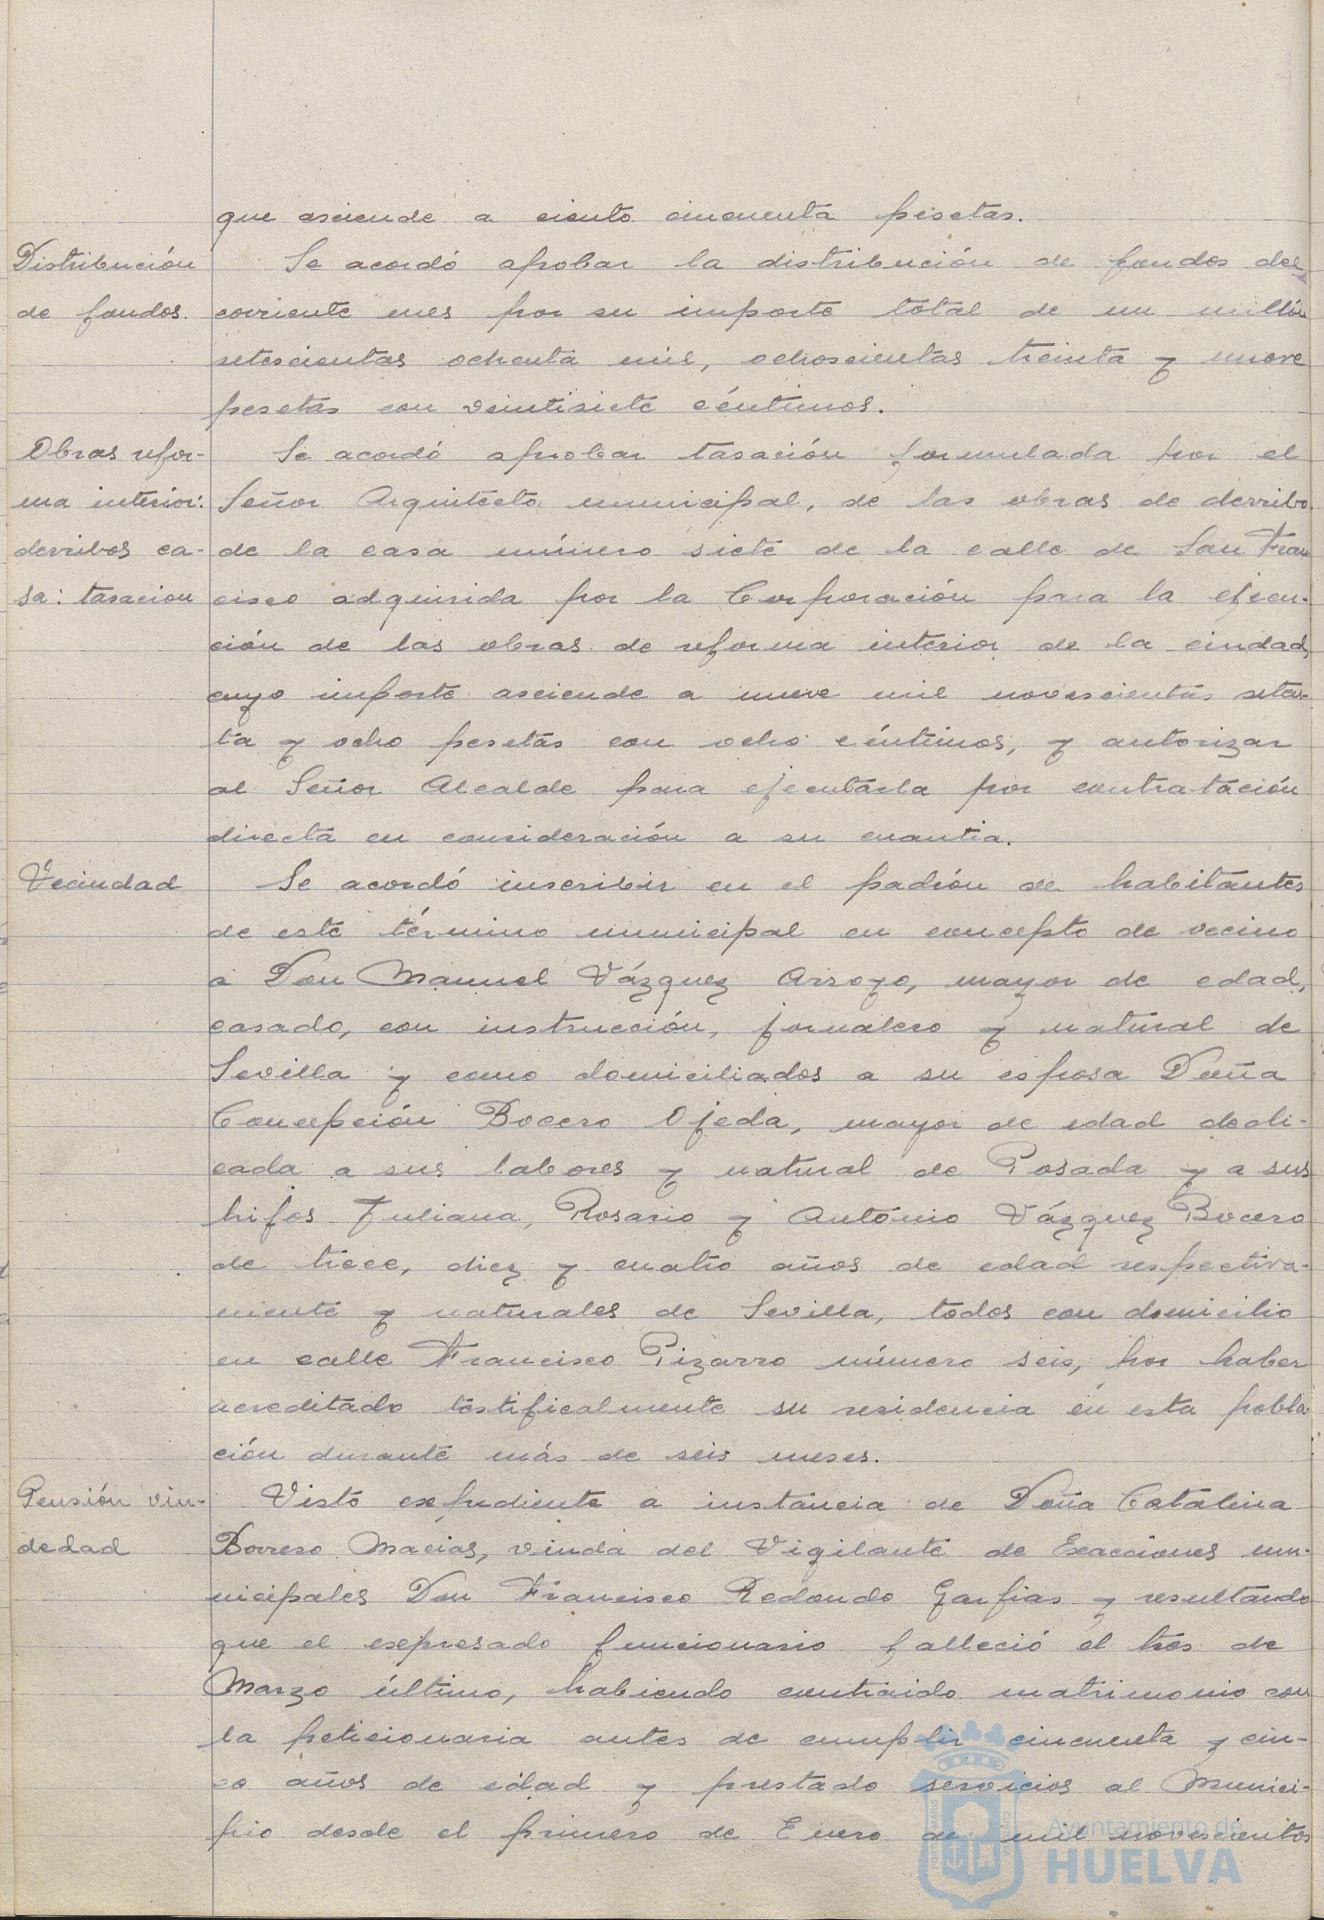 que asciende a ciento cincuenta pesetas.
Distribución
de fondos.
Se acordó aprobar la distribución de fondos del
corriente mes por su importe total de un millón
setescientas ochenta mil, ochoscientas treinta y nueve
pesetas con veintisiete céntimos.
Obras refor-
ma interior:
derribos ca-
sa: tasacion
Se acordó aprobar tasación formulada por el
Señor Arquitecto municipal, de las obras de derribo
de la casa número siete de la calle de San Fran
cisco adquirida por la Corporación para la ejecu-
ción de las obras de reforma interior de la ciudad,
cuyo importe asciende a nueve mil novescientas seten-
ta y ocho pesetas con ocho céntimos, y autorizar
al Señor Alcalde para ejecutarla por contratación
directa en consideración a su cuantia.
Vecindad
Se acordó inscribir en el padrón de habitantes
de este término municipal en concepto de vecino
a Don Manuel Vázquez Arroyo, mayor de edad,
casado, con instrucción, jornalero y natural de
Sevilla y como domiciliados a su esposa Doña
Concepción Bocero Ojeda, mayor de edad dedi-
cada a sus labores y natural de Posada y a sus
hijos Juliana, Rosario y António Vázquez Bocero
de trece, diez y cuatro años de edad respectiva-
mente y naturales de Sevilla, todos con domicilio
en calle Francisco Pizarro número seis, por haber
acreditado testificalmente su residencia en esta pobla-
ción durante más de seis meses.
Pensión viu-
dedad
Visto expediente a instancia de Doña Catalina
Borrero Macias, viuda del Vigilante de Exacciones mu-
nicipales Don Francisco Redondo Garfias y resultando
que el expresado funcionario falleció el tres de
Marzo último, habiendo contraido matrimonio con
la peticionaria antes de cumplir cincuenta y cin-
co años de edad y prestado servicios al Munici-
pio desde el primero de Enero de mil novescientos
Ayuntamiento de
HUELVA